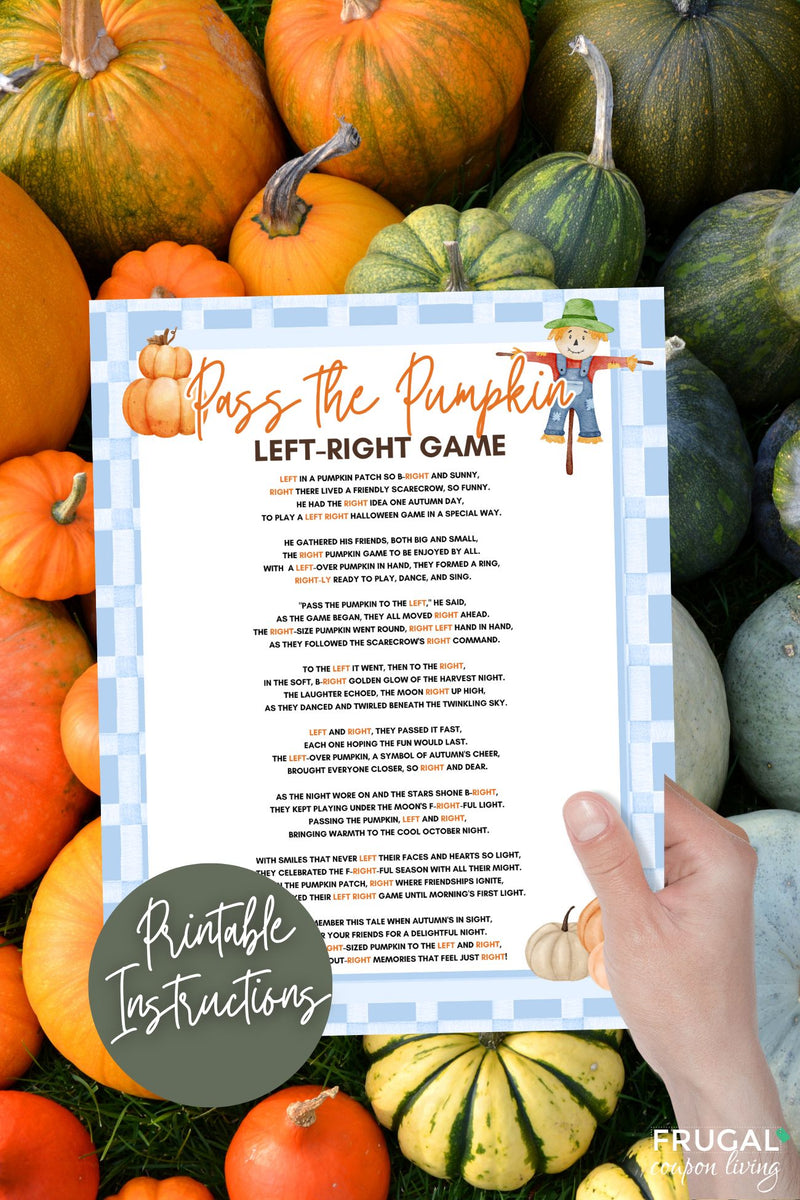 Pass the Pumpkin
LEFT-RIGHT GAME
LEFT IN A PUMPKIN PATCH SO B-RIGHT AND SUNNY,
RIGHT THERE LIVED A FRIENDLY SCARECROW, SO FUNNY.
HE HAD THE RIGHT IDEA ONE AUTUMN DAY,
TO PLAY A LEFT RIGHT HALLOWEEN GAME IN A SPECIAL WAY.
HE GATHERED HIS FRIENDS, BOTH BIG AND SMALL,
THE RIGHT PUMPKIN GAME TO BE ENJOYED BY ALL.
WITH A LEFT-OVER PUMPKIN IN HAND, THEY FORMED A RING,
RIGHT-LY READY TO PLAY, DANCE, AND SING.
"PASS THE PUMPKIN TO THE LEFT," HE SAID,
AS THE GAME BEGAN, THEY ALL MOVED RIGHT AHEAD.
THE RIGHT-SIZE PUMPKIN WENT ROUND, RIGHT LEFT HAND IN HAND,
AS THEY FOLLOWED THE SCARECROW'S RIGHT COMMAND.
TO THE LEFT IT WENT, THEN TO THE RIGHT,
IN THE SOFT, B-RIGHT GOLDEN GLOW OF THE HARVEST NIGHT.
THE LAUGHTER ECHOED, THE MOON RIGHT UP HIGH,
AS THEY DANCED AND TWIRLED BENEATH THE TWINKLING SKY.
LEFT AND RIGHT, THEY PASSED IT FAST,
EACH ONE HOPING THE FUN WOULD LAST.
THE LEFT-OVER PUMPKIN, A SYMBOL OF AUTUMN'S CHEER,
BROUGHT EVERYONE CLOSER, SO RIGHT AND DEAR.
AS THE NIGHT WORE ON AND THE STARS SHONE B-RIGHT,
THEY KEPT PLAYING UNDER THE MOON'S F-RIGHT-FUL LIGHT.
PASSING THE PUMPKIN, LEFT AND RIGHT,
BRINGING WARMTH TO THE COOL OCTOBER NIGHT.
WITH SMILES THAT NEVER LEFT THEIR FACES AND HEARTS SO LIGHT,
THEY CELEBRATED THE F-RIGHT-FUL SEASON WITH ALL THEIR MIGHT.
THE PUMPKIN PATCH, RIGHT WHERE FRIENDSHIPS IGNITE,
THEIR LEFT RIGHT GAME UNTIL MORNING'S FIRST LIGHT.
THIS TALE WHEN AUTUMN'S IN SIGHT,
YOUR FRIENDS FOR A DELIGHTFUL NIGHT.
-SIZED PUMPKIN TO THE LEFT AND RIGHT,
OUT-RIGHT MEMORIES THAT FEEL JUST RIGHT!
Printable
Instructions
FRUGAL
coupon living